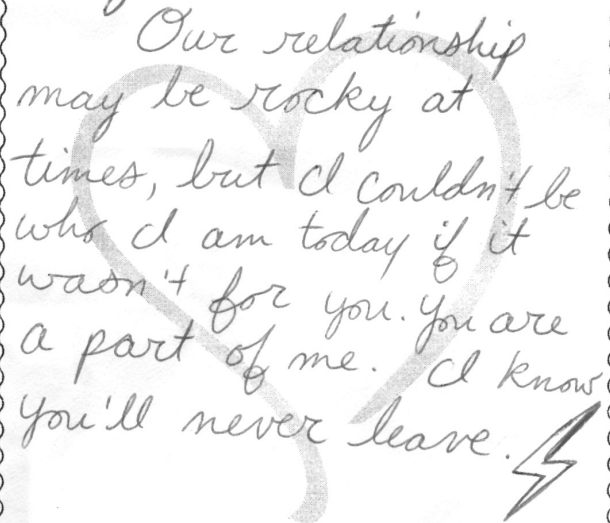 Our relationship
may be rocky at
times, but I couldn't be
who I am today if it
wasn't for you. You are
a part of me. I know
you'll never leave.